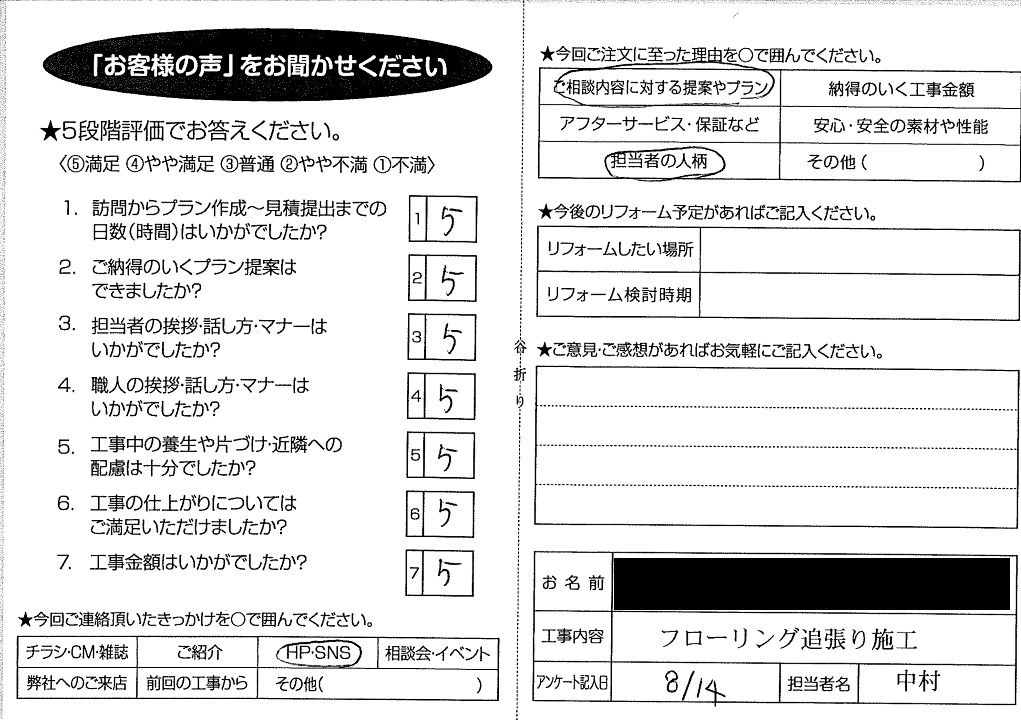 「お客様の声」をお聞かせください
★5段階評価でお答えください。
〈⑤満足 ④やや満足 ③普通 ②やや不満 ①不満〉
1. 訪問からプラン作成～見積提出までの
日数(時間)はいかがでしたか?
1 5
2. ご納得のいくプラン提案は
できましたか?
2 5
3. 担当者の挨拶・話し方・マナーは
いかがでしたか?
3 5
4. 職人の挨拶・話し方・マナーは
いかがでしたか?
4 5
5. 工事中の養生や片づけ・近隣への
配慮は十分でしたか?
5 5
6. 工事の仕上がりについては
ご満足いただけましたか?
6 5
7. 工事金額はいかがでしたか?
7 5
★今回ご連絡頂いたきっかけを○で囲んでください。
チラシ・CM・雑誌 ご紹介 HP・SNS 相談会・イベント
弊社へのご来店 前回の工事から その他( )
谷折り
★今回ご注文に至った理由を○で囲んでください。
ご相談内容に対する提案やプラン 納得のいく工事金額
アフターサービス・保証など 安心・安全の素材や性能
担当者の人柄 その他( )
★今後のリフォーム予定があればご記入ください。
リフォームしたい場所
リフォーム検討時期
★ご意見・ご感想があればお気軽にご記入ください。
お名前
工事内容 フローリング追張り施工
アンケート記入日 8/14 担当者名 中村